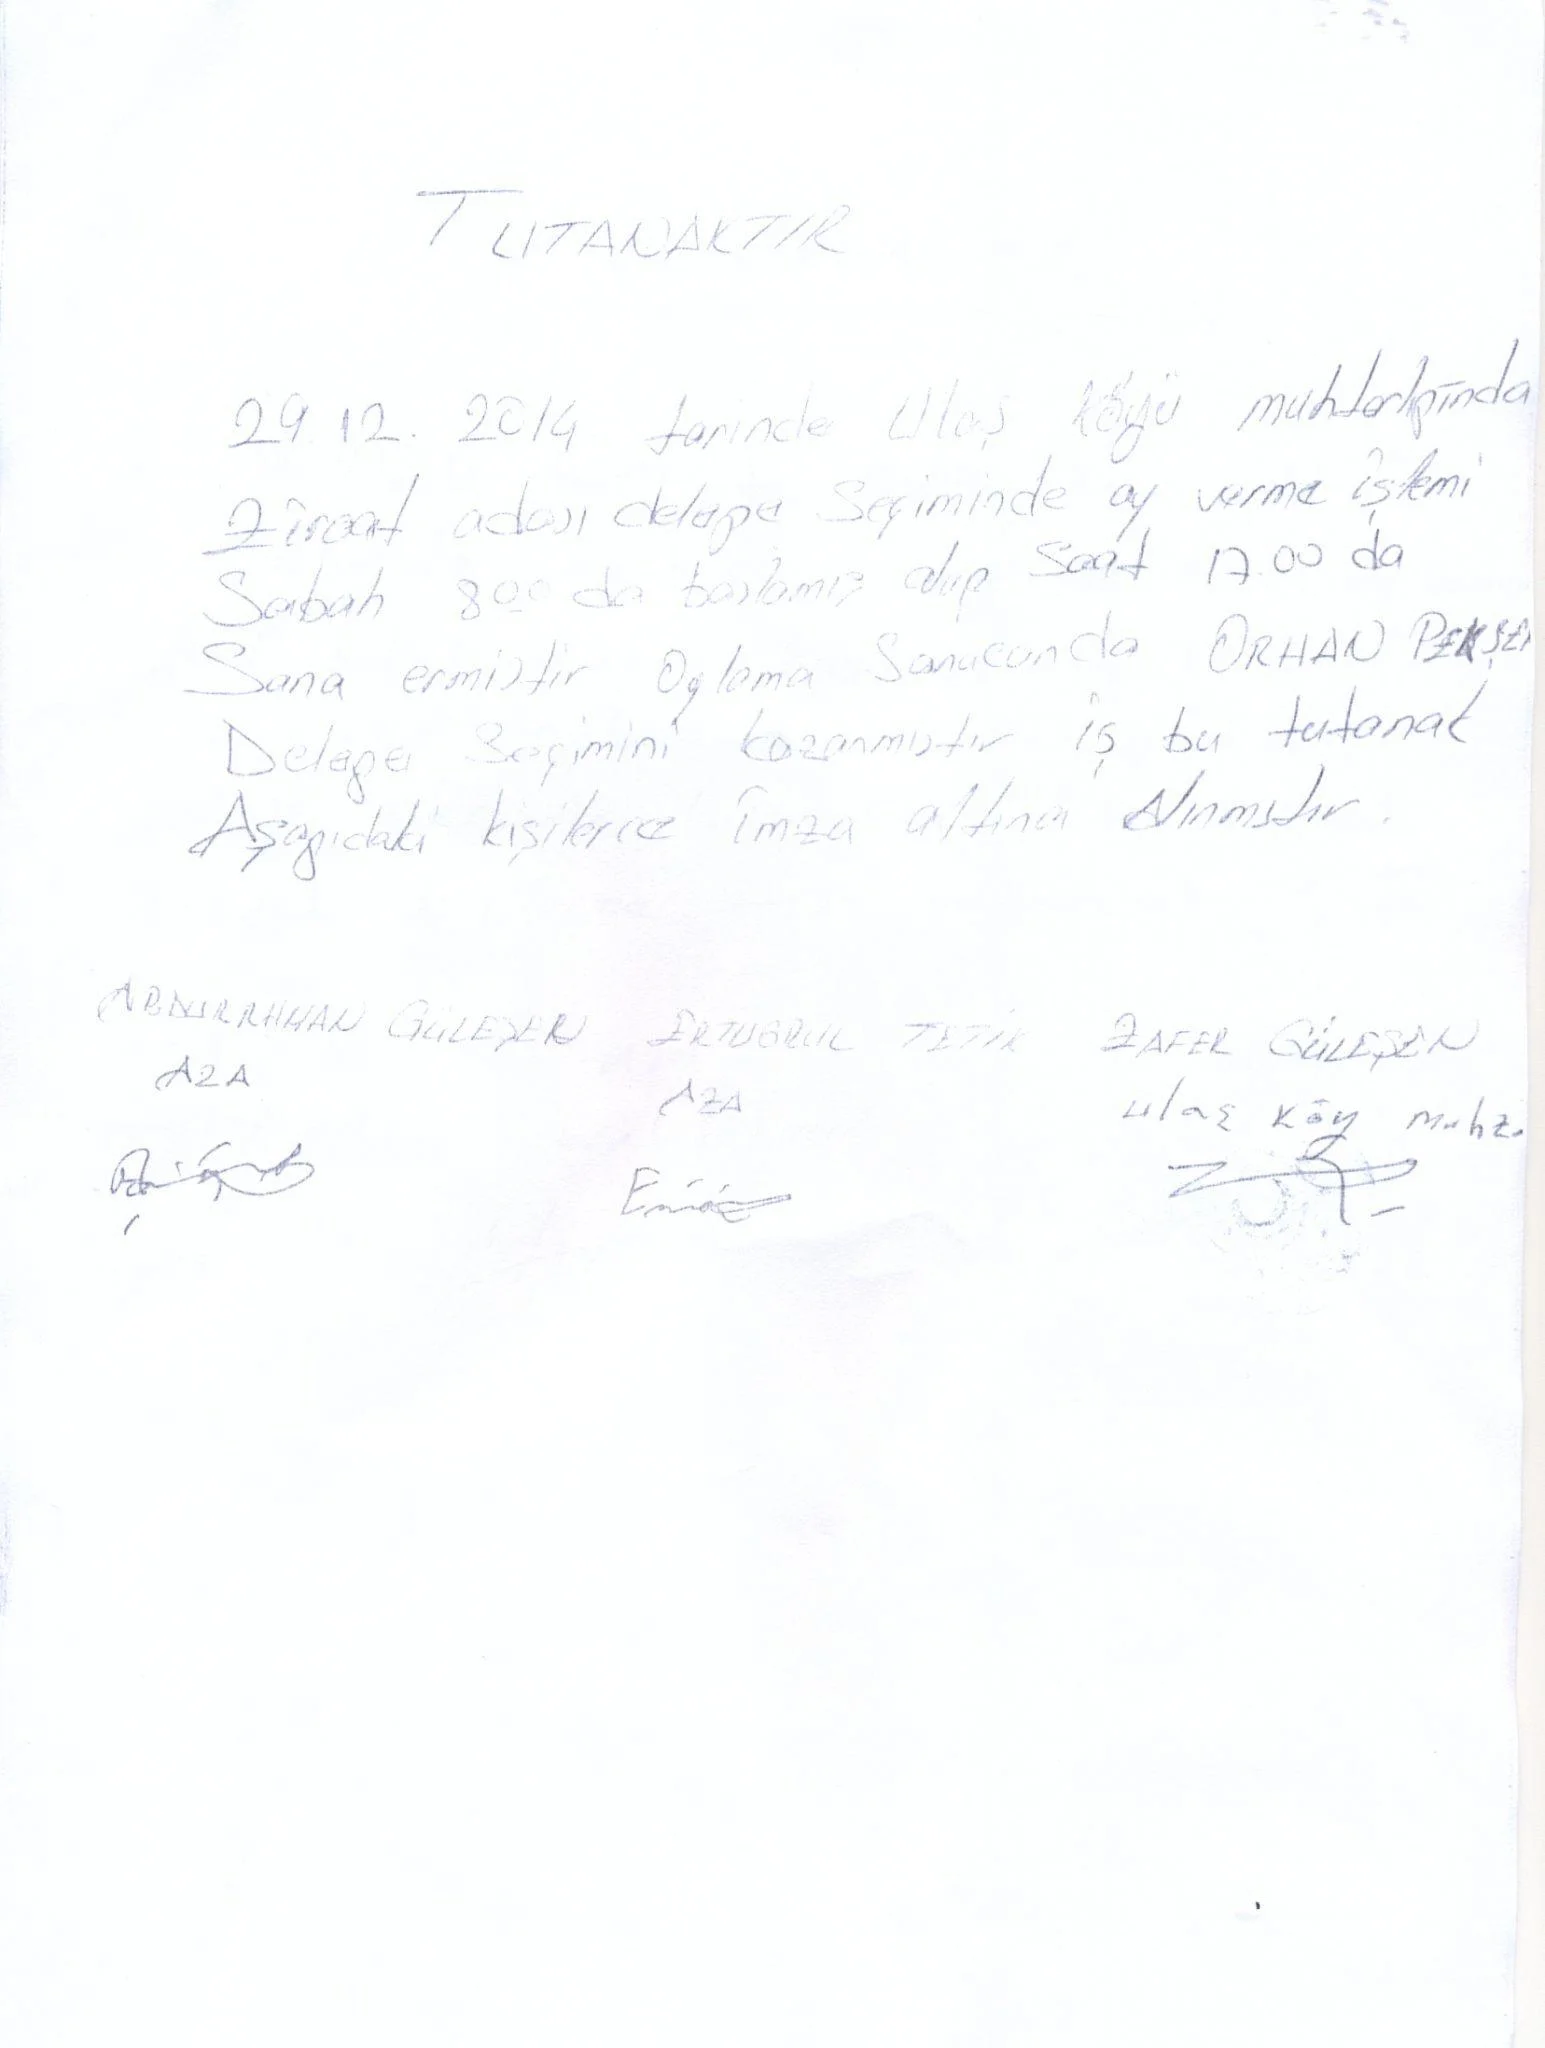 TUTANAKTIR
29.12.2014 tarinde Ulaş Köyü muhtarlığında
Ziraat odası delege Seçiminde oy verme işlemi
Sabah 800 da başlamış olup Saat 17.00 da
Sona ermiştir Oylama Sonucunda ORHAN
Delege Seçimini kazanmıştır iş bu tutanak
Aşağıdaki kişilerce imza altına Alınmıştır.
ABDURRAHMAN GÜLEŞEN ERTUĞRUL TETİK ZAFER GÜLEŞEN
AZA AZA Ulaş Köy Muht.